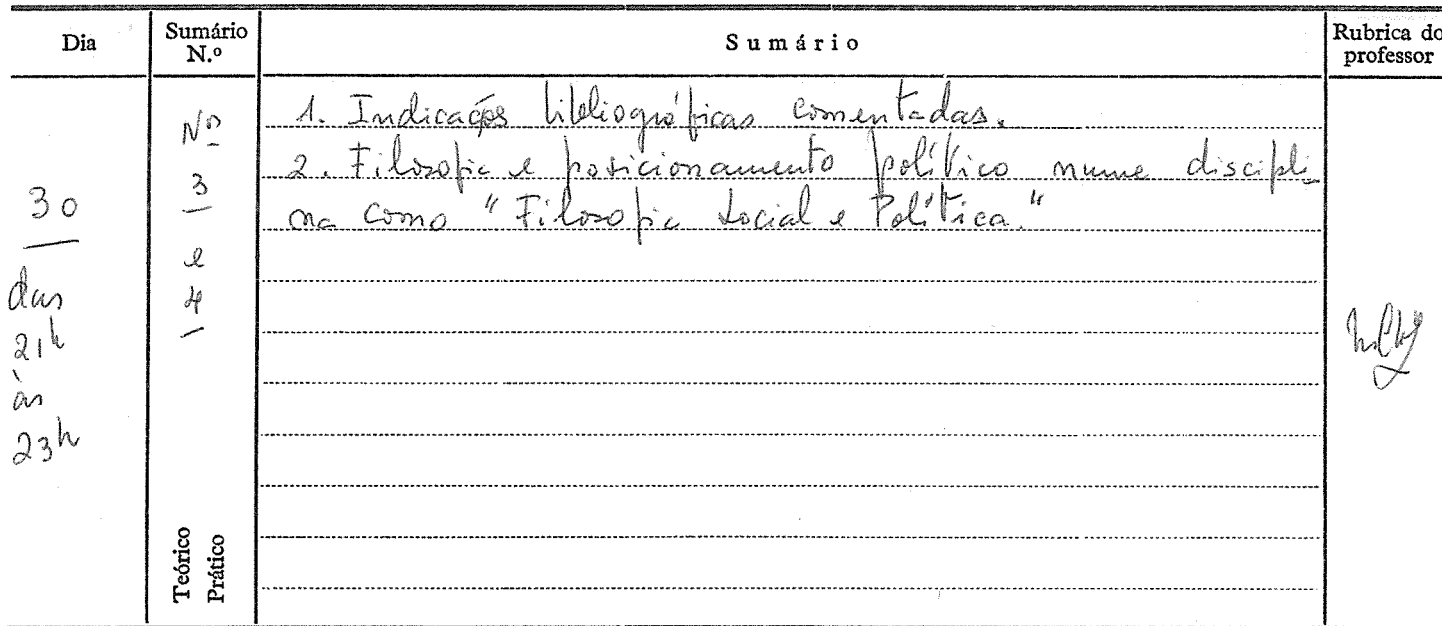 Dia
Sumário
N.º
Sumário
Rubrica do
professor
30
das
21h
às
23h
Nº
3
e
4
Teórico
Prático
1. Indicações bibliográficas comentadas.
2. Filosofia e posicionamento político numa discipli
na como "Filosofia Social e Política."